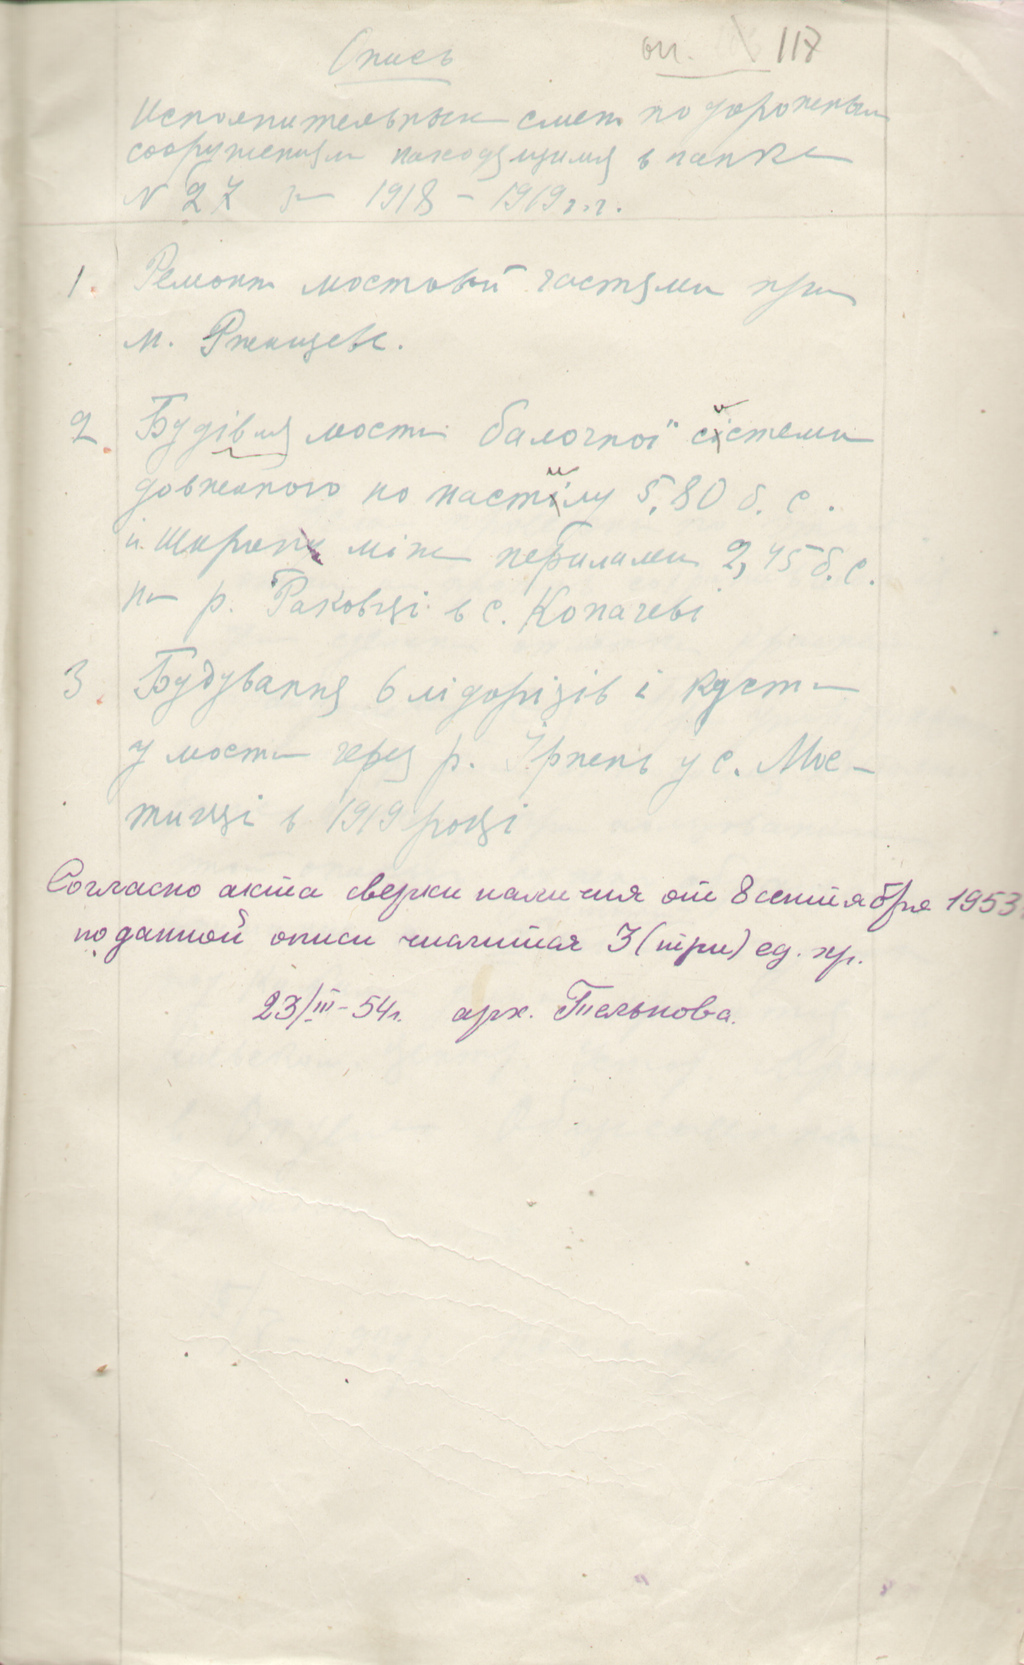 Опись
оп. 117
Исполнительных смет по дорожным
сооружениям находящимся в папке
N 27 за 1918 – 1919 г.г.
1. Ремонт мостовой частями при
м. Ржищеве.
2. Будівля моста балочної системи
довжиною по настилу 5,80 б. с.
и ширини між перилами 2,45 б. с.
на р. Раковці в с. Копачеві
3. Будування 6 лідорізів і куста
у моста через р. Ірпень у с. Мос-
тищі в 1919 році
Согласно акта сверки наличия от 8 сентября 1953
по данной описи числится 3 (три) ед. хр.
23/III-54г. арх. Телькова.